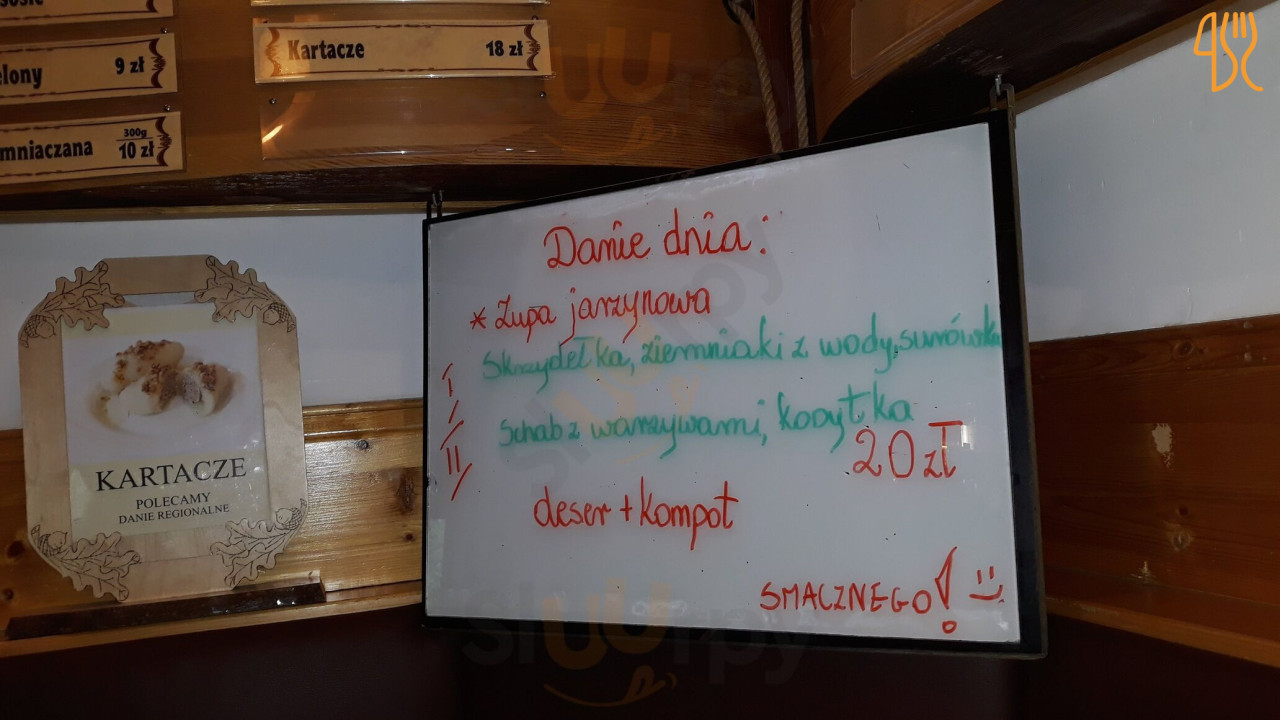 Kartacze 18 zł
elony 9 zł
mniaczana 300g 10 zł
KARTACZE
POLECAMY
DANIE REGIONALNE
Danie dnia:
* Zupa jarzynowa
I/ Skrzydełka, ziemniaki z wody, surówka
II/ Schab z warzywami, kopytka
20 zł
deser + kompot
SMACZNEGO! :)
sluurpy